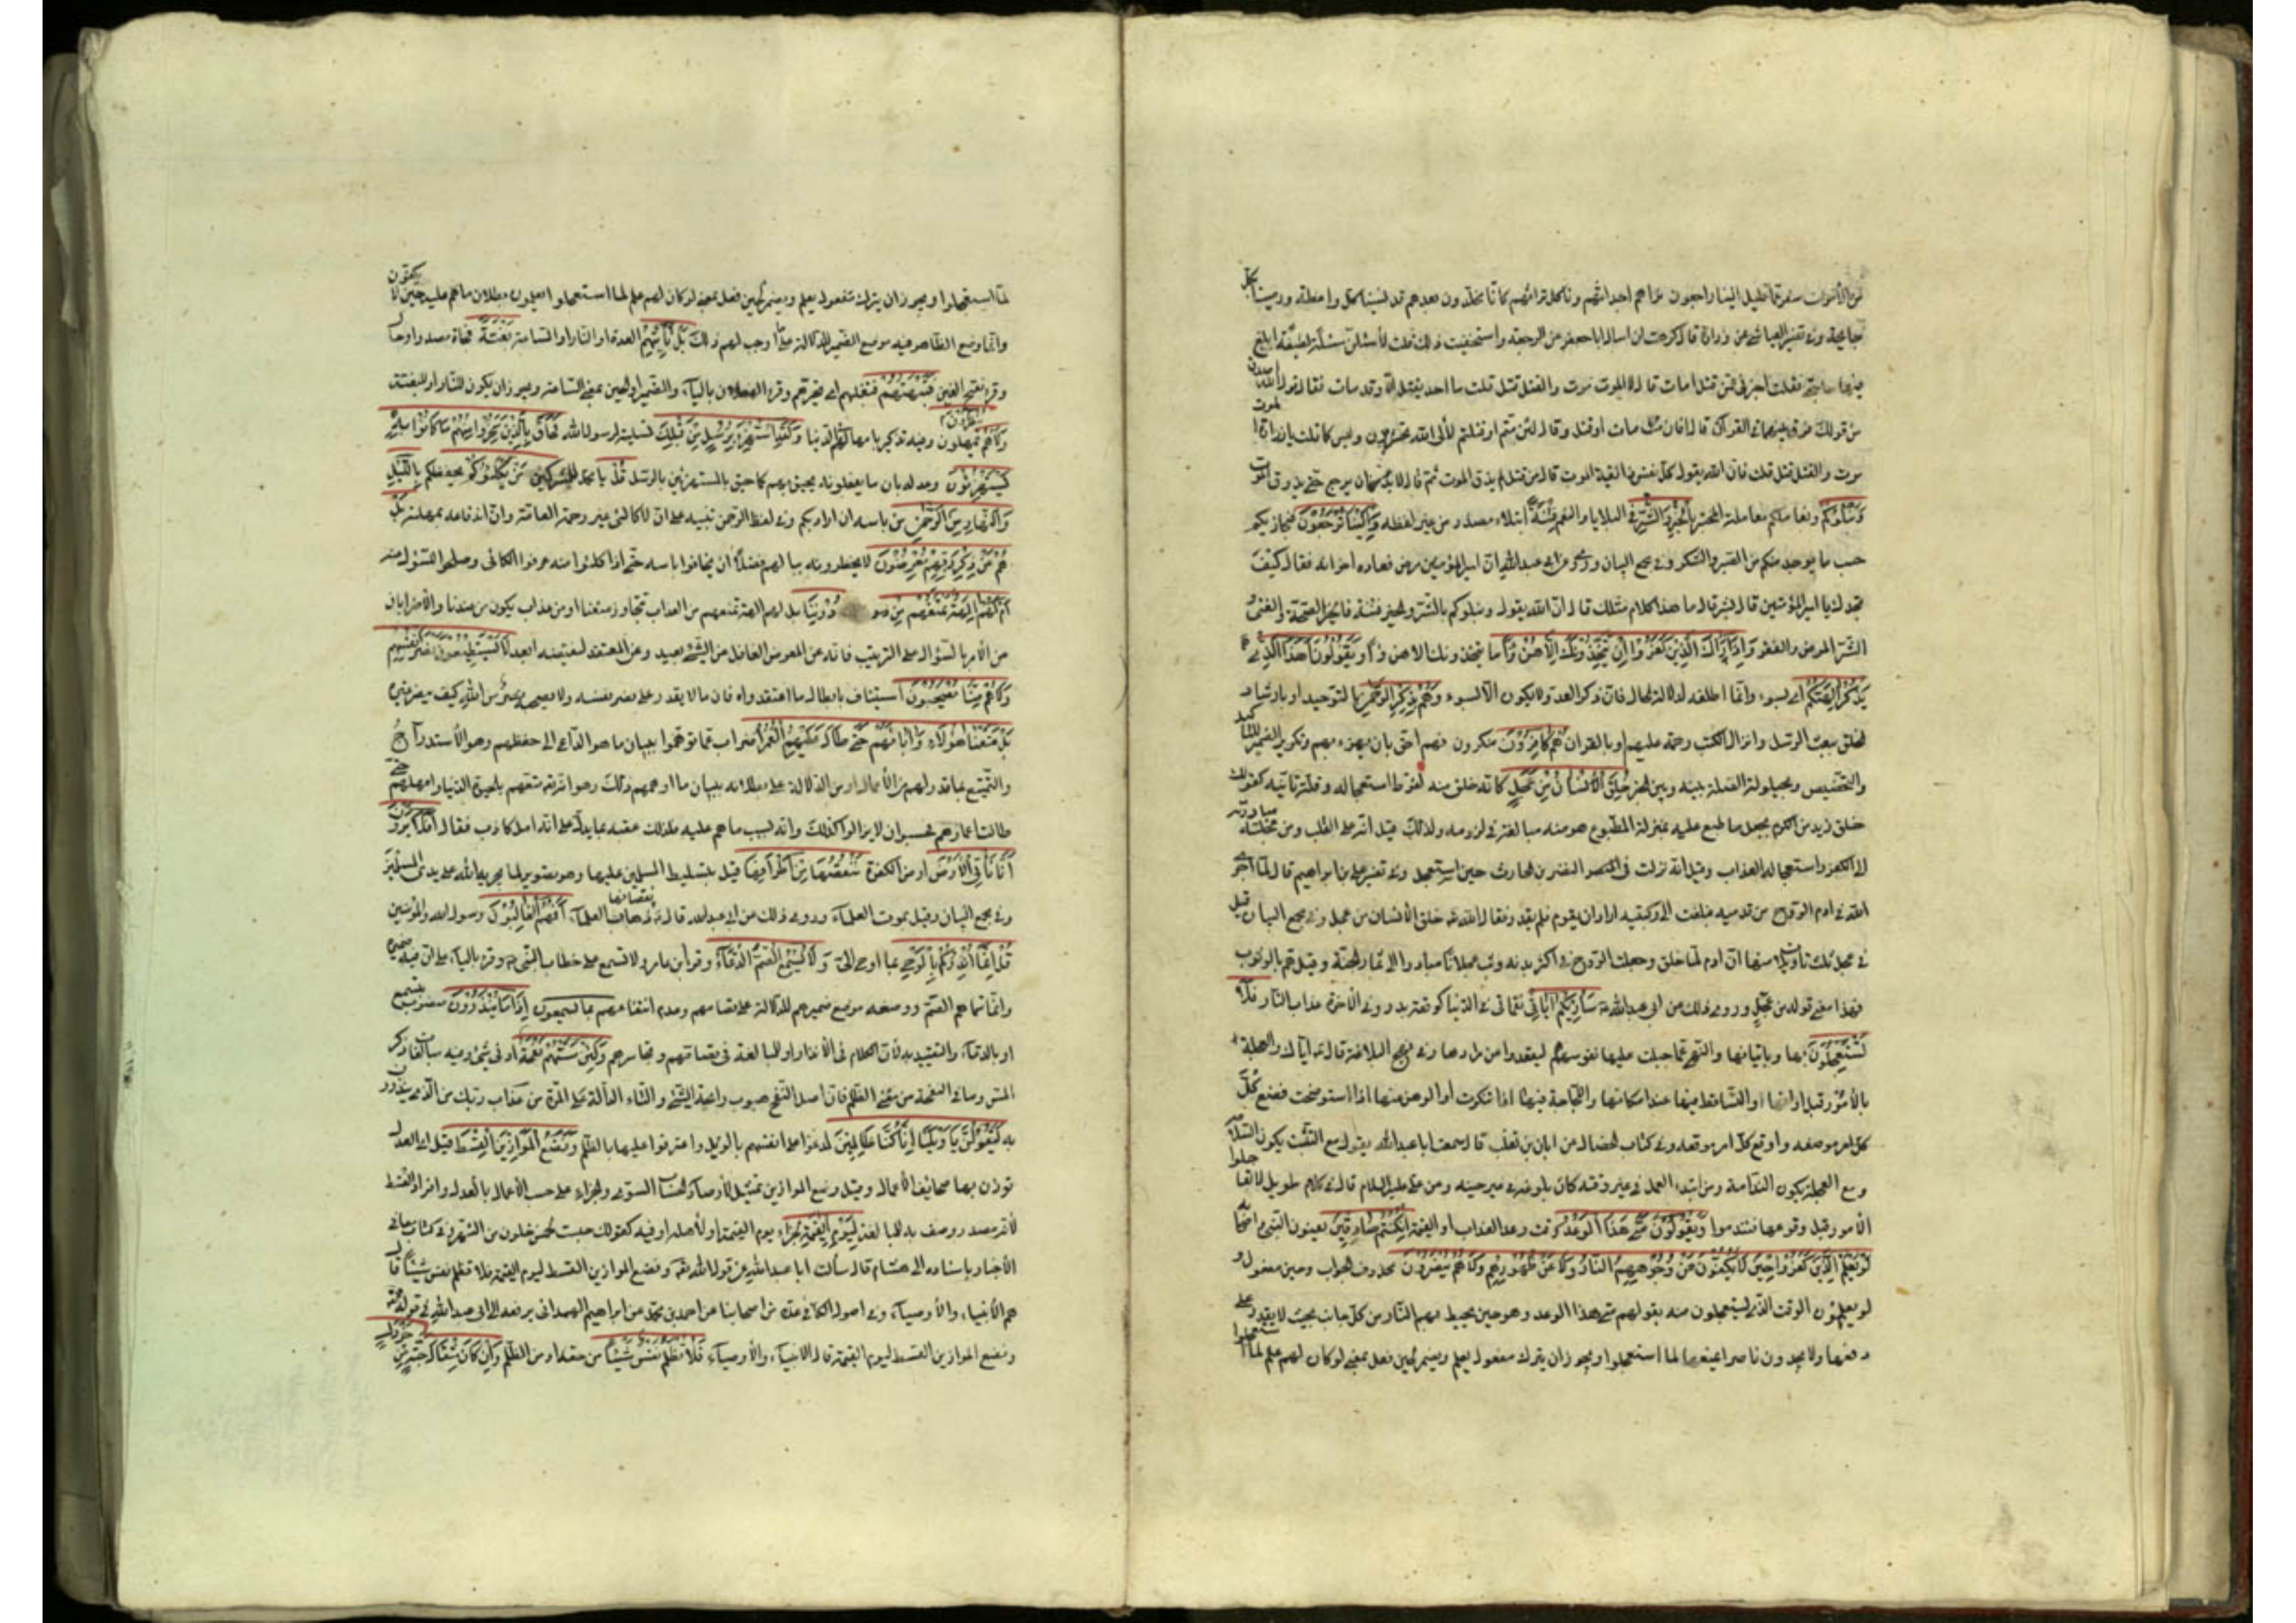 من الأموات سفر عما قليل الينا راجعون نبوئهم اجداثهم ونأكل تراثهم كأنا مخلدون بعدهم قد نسينا كل واعظة ورمينا بكل
جايحة وفى تفسير العياشى عن زرارة قال كرهت ان اسال ابا جعفر عن الرجعة واستخفيت ذلك قلت لأسئلن مسئلة لطيفة ابلغ
منها حاجتى فقلت اخبرنى عمن قتل امات قال لا الموت موت والقتل قتل قلت ما احد يقتل الا وقد مات فقال قول الله اصدق
من قولك فرق بينهما فى القرآن قال افان مات اوقتل وقال لئن متم او قتلتم لألى الله تحشرون وليس كما قلت يا زرارة الموت
موت والقتل قتل قلت فان الله يقول كل نفس ذائقة الموت قال من قتل لم يذق الموت ثم قال لا بد من ان يرجع حتى يذوق الموت
وَنَبْلُوكُمْ ونعاملكم معاملة المختبر بِالْخَيْرِ وَالشَّرِّ فى البلايا والنعم فِتْنَةً ابتلاء مصدر من غير لفظه وَاِلَيْنَا تُرْجَعُوْنَ فنجازيكم
حسب ما يوجد منكم من الصبر والشكر وفى مجمع البيان وروى عن ابى عبد الله ان امير المؤمنين مرض فعاده اخوانه فقال كيف
نجدك يا امير المؤمنين قال بشر قال ما هذا كلام مثلك قال ان الله يقول ونبلوكم بالشر والخير فتنة فالخير الصحة والغنى و
الشر المرض والفقر وَاِذَا رَاٰكَ الَّذِيْنَ كَفَرُوْا اِنْ يَتَّخِذُوْنَكَ اِلَّا هُزُوًا ما يتخذونك الا هزوا ويقولون اَهٰذَا الَّذِىْ
يَذْكُرُ اٰلِهَتَكُمْ اى بسوء وانما اطلقه لدلالة الحال فان ذكر العدو لا يكون الا بسوء وَهُمْ بِذِكْرِ الرَّحْمٰنِ بالتوحيد او بارشاد
الخلق ببعث الرسل وانزال الكتب رحمة عليهم او بالقران هُمْ كَافِرُوْنَ منكرون فهم احق بان يهزء بهم وتكرير الضمير للتأكيد
والتخصيص ولحيلولة الصلة بينه وبين الخبر خُلِقَ الْاِنْسَانُ مِنْ عَجَلٍ كانه خلق منه لفرط استعجاله وقلة تأنيه كقولك
خلق زيد من الكرم بجعل ما طبع عليه بمنزلة المطبوع هو منه مبالغة فى لزومه ولذلك قيل انه على القلب ومن عجلته مبادرته
الى الكفر واستعجاله العذاب وقيل انه نزلت فى النضر بن الحارث حين استعجل وفى تفسير على بن ابراهيم قال لما اجرى
الله فى ادم الروح من قدميه فبلغت الى ركبتيه اراد ان يقوم فلم يقدر فقال الله خلق الانسان من عجل وفى مجمع البيان قيل
فى عجل ثلث تاويلات منها ان ادم لما خلق وجعلت الروح فى اكثر بدنه وثب عجلانا مبادرا الى ثمار الجنة وقيل هم بالوثوب
فهذا معنى قوله من عجل وروى ذلك عن ابى عبد الله سَاُرِيْكُمْ اٰيَاتِىْ نقماتى فى الدنيا كوقعة بدر وفى الاخرة عذاب النار فَلَا
تَسْتَعْجِلُوْنَ بها وباتيانها والنهى عما جبلت عليها نفوسهم ليقعدوا عن مرادها وفى نهج البلاغة قال اياك والعجلة
بالأمور قبل اوانها او التساقط فيها عند امكانها واللجاجة فيها اذا تنكرت او الوهن عنها اذا استوضحت فضع كل
كل امر موضعه واوقع كل امر موقعه وفى كتاب الخصال عن ابان بن تغلب قال سمعت ابا عبد الله يقول مع التثبت يكون السلامة
ومع العجلة يكون الندامة ومن ابتدء العمل فى غير وقته كان بلوغه فى غير حينه وعن على عليه السلام قال فى كلام طويل لا تعاجلوا
الأمور قبل وقوعها فتندموا وَيَقُوْلُوْنَ مَتٰى هٰذَا الْوَعْدُ وقت وعد العذاب او القيمة اِنْ كُنْتُمْ صَادِقِيْنَ يعنون النبى واصحابه
لَوْ يَعْلَمُ الَّذِيْنَ كَفَرُوْا حِيْنَ لَا يَكُفُّوْنَ عَنْ وُجُوْهِهِمُ النَّارَ وَلَا عَنْ ظُهُوْرِهِمْ وَلَا هُمْ يُنْصَرُوْنَ محذوف الجواب وحين مفعول
لو يعلمون الوقت الذى يستعجلون منه بقولهم متى هذا الوعد وهو حين يحيط بهم النار من كل جانب بحيث لا يقدر على
دفعها ولا يجدون ناصرا يمنعها لما استعجلوا ويجوز ان يترك مفعول يعلم ويضمر لحين فعل بمعنى لو كان لهم علم لما استعجلوا
لما استعجلوا ويجوز ان يترك مفعول يعلم ويضمر لحين فعل بمعنى لو كان لهم علم لما استعجلوا يعلمون بطلان ما هم عليه حين لا يكفون
وانما وضع الظاهر فيه موضع الضمير للدلالة على ما اوجب لهم ذلك بَلْ تَأْتِيْهِمْ العدة او النار او الساعة بَغْتَةً فجاة مصدر او حال
وقرئ بفتح الغين فَتَبْهَتُهُمْ فتغلبهم او تحيرهم وقرئ الفعلان بالياء والضمير للوعد او لحين بمعنى الساعة ويجوز ان يكون للنار او للبغتة
وَلَا هُمْ يُنْظَرُوْنَ يمهلون وفيه تذكير بامهالهم فى الدنيا وَلَقَدِ اسْتُهْزِئَ بِرُسُلٍ مِنْ قَبْلِكَ تسلية لرسول الله فَحَاقَ بِالَّذِيْنَ سَخِرُوْا مِنْهُمْ مَا كَانُوْا بِهِ
يَسْتَهْزِئُوْنَ وعد له بان ما يفعلونه يحيق بهم كما حاق بالمستهزئين بالرسل قُلْ يا محمد للمستهزئين مَنْ يَكْلَؤُكُمْ يحفظكم بِاللَّيْلِ
وَالنَّهَارِ مِنَ الرَّحْمٰنِ من باسه ان اراد بكم وفى لفظ الرحمن تنبيه على ان لا كالئ غير رحمته العامة وان اندفاعه بمهلته بَلْ
هُمْ عَنْ ذِكْرِ رَبِّهِمْ مُعْرِضُوْنَ لا يخطرونه ببالهم فضلا ان يخافوا باسه حتى اذا كلئوا منه عرفوا الكالئ وصلحوا للسؤل عنه
اَمْ لَهُمْ اٰلِهَةٌ تَمْنَعُهُمْ مِنْ دُوْنِنَا بل الهم الهة تمنعهم من العذاب تتجاوز منعنا او من عذاب يكون من عندنا والأضرابان
عن الأمر بالسؤال على الترتيب فانه عن المعرض الغافل عن الشئ بعيد وعن المعتقد لنقيضه ابعد لَا يَسْتَطِيْعُوْنَ نَصْرَ اَنْفُسِهِمْ
وَلَا هُمْ مِنَّا يُصْحَبُوْنَ استيناف بابطال ما اعتقدوه فان ما لا يقدر على نصر نفسه ولا يصحبه نصر من الله كيف ينصر غيره
بَلْ مَتَّعْنَا هٰؤُلَاءِ وَاٰبَاءَهُمْ حَتّٰى طَالَ عَلَيْهِمُ الْعُمُرُ اضراب عما توهموا ببيان ما هو الداعى الى حفظهم وهو الأستدراج
والتمتيع بما قدر لهم من الأعمار او من الدلالة على بطلانه ببيان ما اوهمهم ذلك وهو انه متعهم بالحيوة الدنيا وامهلهم حتى
طالت اعمارهم فحسبوا ان لا يزالوا كذلك وانه بسبب ما هم عليه ولذلك عقبه بما يدل على انه امل كاذب فقال اَفَلَا يَرَوْنَ
اَنَّا نَاْتِى الْاَرْضَ ارض الكفرة نَنْقُصُهَا مِنْ اَطْرَافِهَا قيل بتسليط المسلمين عليها وهو تصوير لما يجريه الله على يدى المسلمين
وفى مجمع البيان وقيل بموت العلماء وروى ذلك عن ابى عبد الله قال نقصانها ذهاب العلماء اَفَهُمُ الْغَالِبُوْنَ رسول الله والمؤمنين
قُلْ اِنَّمَا اُنْذِرُكُمْ بِالْوَحْىِ بما اوحى الى وَلَا يَسْمَعُ الصُّمُّ الدُّعَاءَ وقرأ ابن عامر ولا تسمع على خطاب النبى وقرئ بالياء على ان فيه ضميره
وانما سماهم الصم ووضعه موضع ضميرهم للدلالة على تصامهم وعدم انتفاعهم بما يسمعون اِذَا مَا يُنْذَرُوْنَ منصوب بيسمع
او بالدعاء والتقييد به لأن الكلام فى الأنذار او للمبالغة فى تصامهم وتجاسرهم وَلَئِنْ مَسَّتْهُمْ نَفْحَةٌ ادنى شئ وفيه مبالغات ذكر
المس وما فى النفحة من معنى القلة فان اصل النفح هبوب رائحة الشئ والتاء الدالة على المرة من عذاب ربك من الذى ينذرون
به لَيَقُوْلُنَّ يَا وَيْلَنَا اِنَّا كُنَّا ظَالِمِيْنَ لدعوا على انفسهم بالويل واعترفوا عليها بالظلم وَنَضَعُ الْمَوَازِيْنَ الْقِسْطَ قيل اى العدل
توزن بها صحائف الأعمال وقيل وضع الموازين تمثيل لأرصاد الحساب السوى والجزاء على حسب الأعمال بالعدل وافراد القسط
لأنه مصدر وصف به للمبالغة لِيَوْمِ الْقِيٰمَةِ لجزاء يوم القيمة او لأهله او فيه كقولك جئت لخمس خلون من الشهر وفى كتاب معانى
الأخبار باسناده الى هشام قال سألت ابا عبد الله عن قول الله ونضع الموازين القسط ليوم القيمة فلا تظلم نفس شيئا قال
هم الأنبياء والأوصياء وفى اصول الكافى عدة من اصحابنا عن احمد بن محمد عن ابراهيم الهمدانى يرفعه الى ابى عبد الله فى قوله
ونضع الموازين القسط ليوم القيمة قال الانبياء والأوصياء فَلَا تُظْلَمُ نَفْسٌ شَيْئًا من حقه او من الظلم وَاِنْ كَانَ مِثْقَالَ حَبَّةٍ مِنْ خَرْدَلٍ